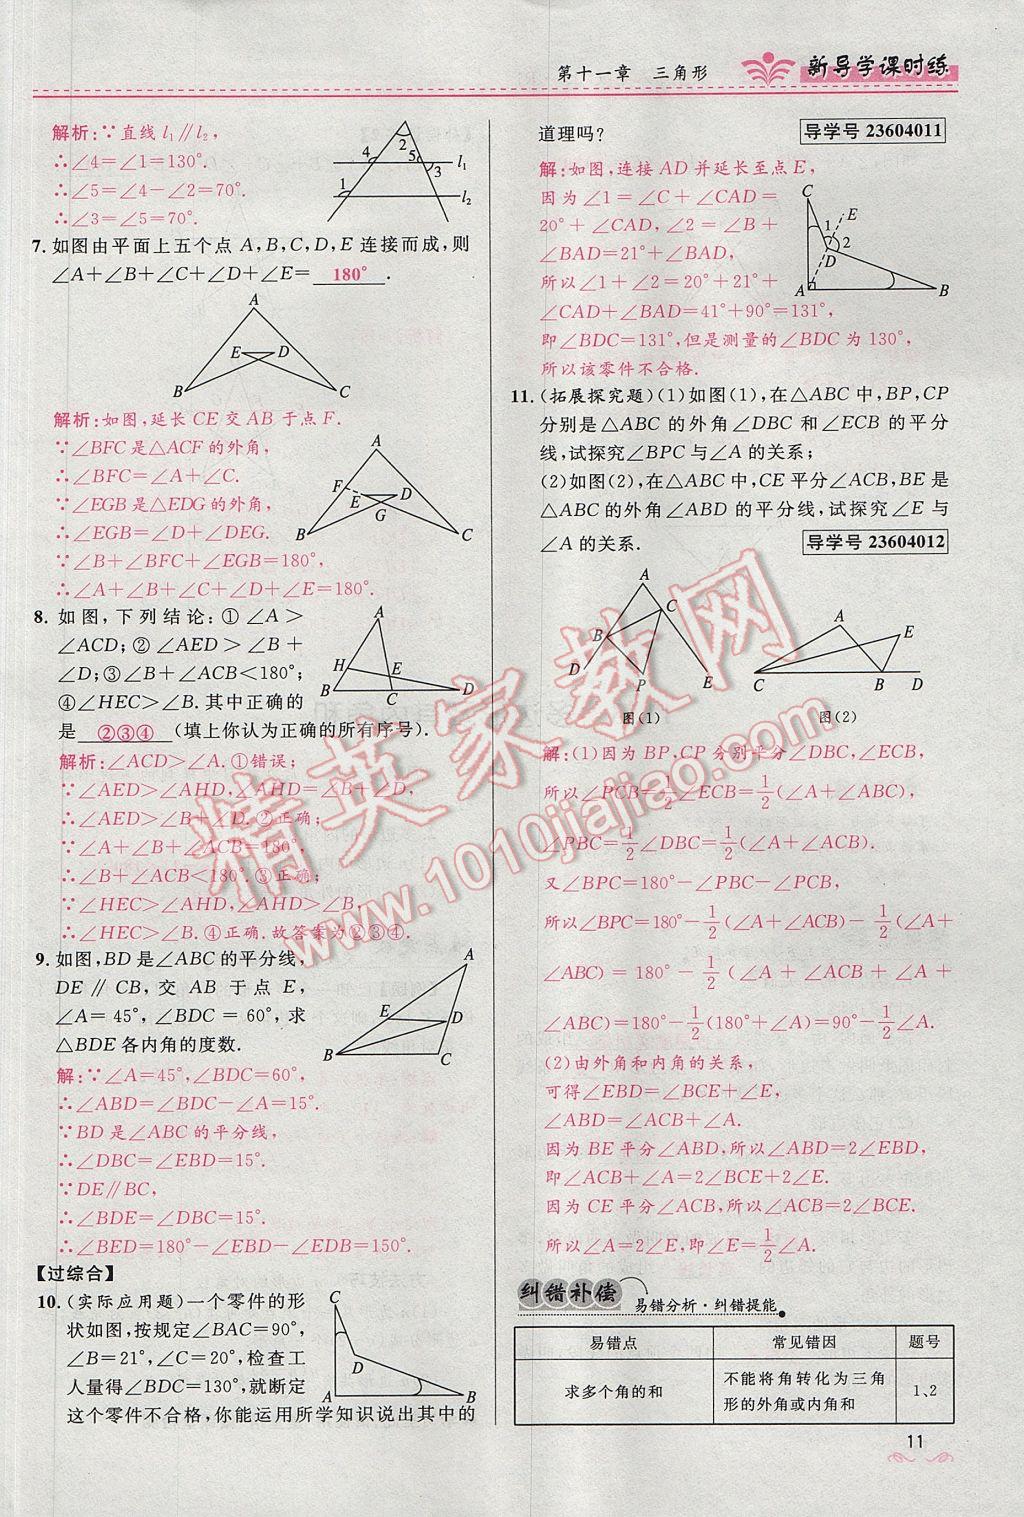 第十一章 三角形
新导学课时练
解析:∵直线 l₁∥l₂,
∴∠4=∠1=130°.
∴∠5=∠4-∠2=70°.
∴∠3=∠5=70°.
2
4 5 l₁
3
1 l₂
7. 如图由平面上五个点 A,B,C,D,E 连接而成,则
∠A+∠B+∠C+∠D+∠E= 180° .
A
E D
B C
解析:如图,延长 CE 交 AB 于点 F.
∵∠BFC 是△ACF 的外角,
∴∠BFC=∠A+∠C.
∵∠EGB 是△EDG 的外角,
∴∠EGB=∠D+∠DEG.
∵∠B+∠BFC+∠EGB=180°,
∴∠A+∠B+∠C+∠D+∠E=180°.
A
F E D
G
B C
8. 如图,下列结论:①∠A>
∠ACD;②∠AED>∠B+
∠D;③∠B+∠ACB<180°;
④∠HEC>∠B.其中正确的
是 ②③④ (填上你认为正确的所有序号).
A
H E
B C D
解析:∠ACD>∠A.①错误;
∵∠AED>∠AHD,∠AHD=∠B+∠D,
∴∠AED>∠B+∠D.②正确;
∵∠A+∠B+∠ACB=180°,
∴∠B+∠ACB<180°.③正确;
∵∠HEC>∠AHD,∠AHD>∠B,
∴∠HEC>∠B.④正确.故答案为②③④.
9. 如图,BD 是∠ABC 的平分线,
DE∥CB,交 AB 于点 E,
∠A=45°,∠BDC=60°,求
△BDE 各内角的度数.
A
E D
B C
解:∵∠A=45°,∠BDC=60°,
∴∠ABD=∠BDC-∠A=15°.
∵BD 是∠ABC 的平分线,
∴∠DBC=∠EBD=15°.
∵DE∥BC,
∴∠BDE=∠DBC=15°.
∴∠BED=180°-∠EBD-∠EDB=150°.
【过综合】
10. (实际应用题)一个零件的形
状如图,按规定∠BAC=90°,
∠B=21°,∠C=20°,检查工
人量得∠BDC=130°,就断定
这个零件不合格,你能运用所学知识说出其中的
C
D
A B
道理吗?
导学号 23604011
解:如图,连接 AD 并延长至点 E,
因为∠1=∠C+∠CAD=
20°+∠CAD,∠2=∠B+
∠BAD=21°+∠BAD,
所以∠1+∠2=20°+21°+
∠CAD+∠BAD=41°+90°=131°,
即∠BDC=131°,但是测量的∠BDC 为 130°,
所以该零件不合格.
C
1 E
2
D
A B
11. (拓展探究题)(1)如图(1),在△ABC 中,BP,CP
分别是△ABC 的外角∠DBC 和∠ECB 的平分
线,试探究∠BPC 与∠A 的关系;
(2)如图(2),在△ABC 中,CE 平分∠ACB,BE 是
△ABC 的外角∠ABD 的平分线,试探究∠E 与
∠A 的关系.
导学号 23604012
A
B C
D P E
图(1)
A E
C B D
图(2)
解:(1)因为 BP,CP 分别平分∠DBC,∠ECB,
所以∠PCB=1/2∠ECB=1/2(∠A+∠ABC),
∠PBC=1/2∠DBC=1/2(∠A+∠ACB).
又∠BPC=180°-∠PBC-∠PCB,
所以∠BPC=180°-1/2(∠A+∠ACB)-1/2(∠A+
∠ABC)=180°-1/2(∠A+∠ACB+∠A+
∠ABC)=180°-1/2(180°+∠A)=90°-1/2∠A.
(2)由外角和内角的关系,
可得∠EBD=∠BCE+∠E,
∠ABD=∠ACB+∠A.
因为 BE 平分∠ABD,所以∠ABD=2∠EBD,
即∠ACB+∠A=2∠BCE+2∠E.
因为 CE 平分∠ACB,所以∠ACB=2∠BCE,
所以∠A=2∠E,即∠E=1/2∠A.
纠错补偿 易错分析·纠错提能
易错点 常见错因 题号
求多个角的和 不能将角转化为三角形的外角或内角和 1、2
11
精英家教网
www.1010jiajiao.com